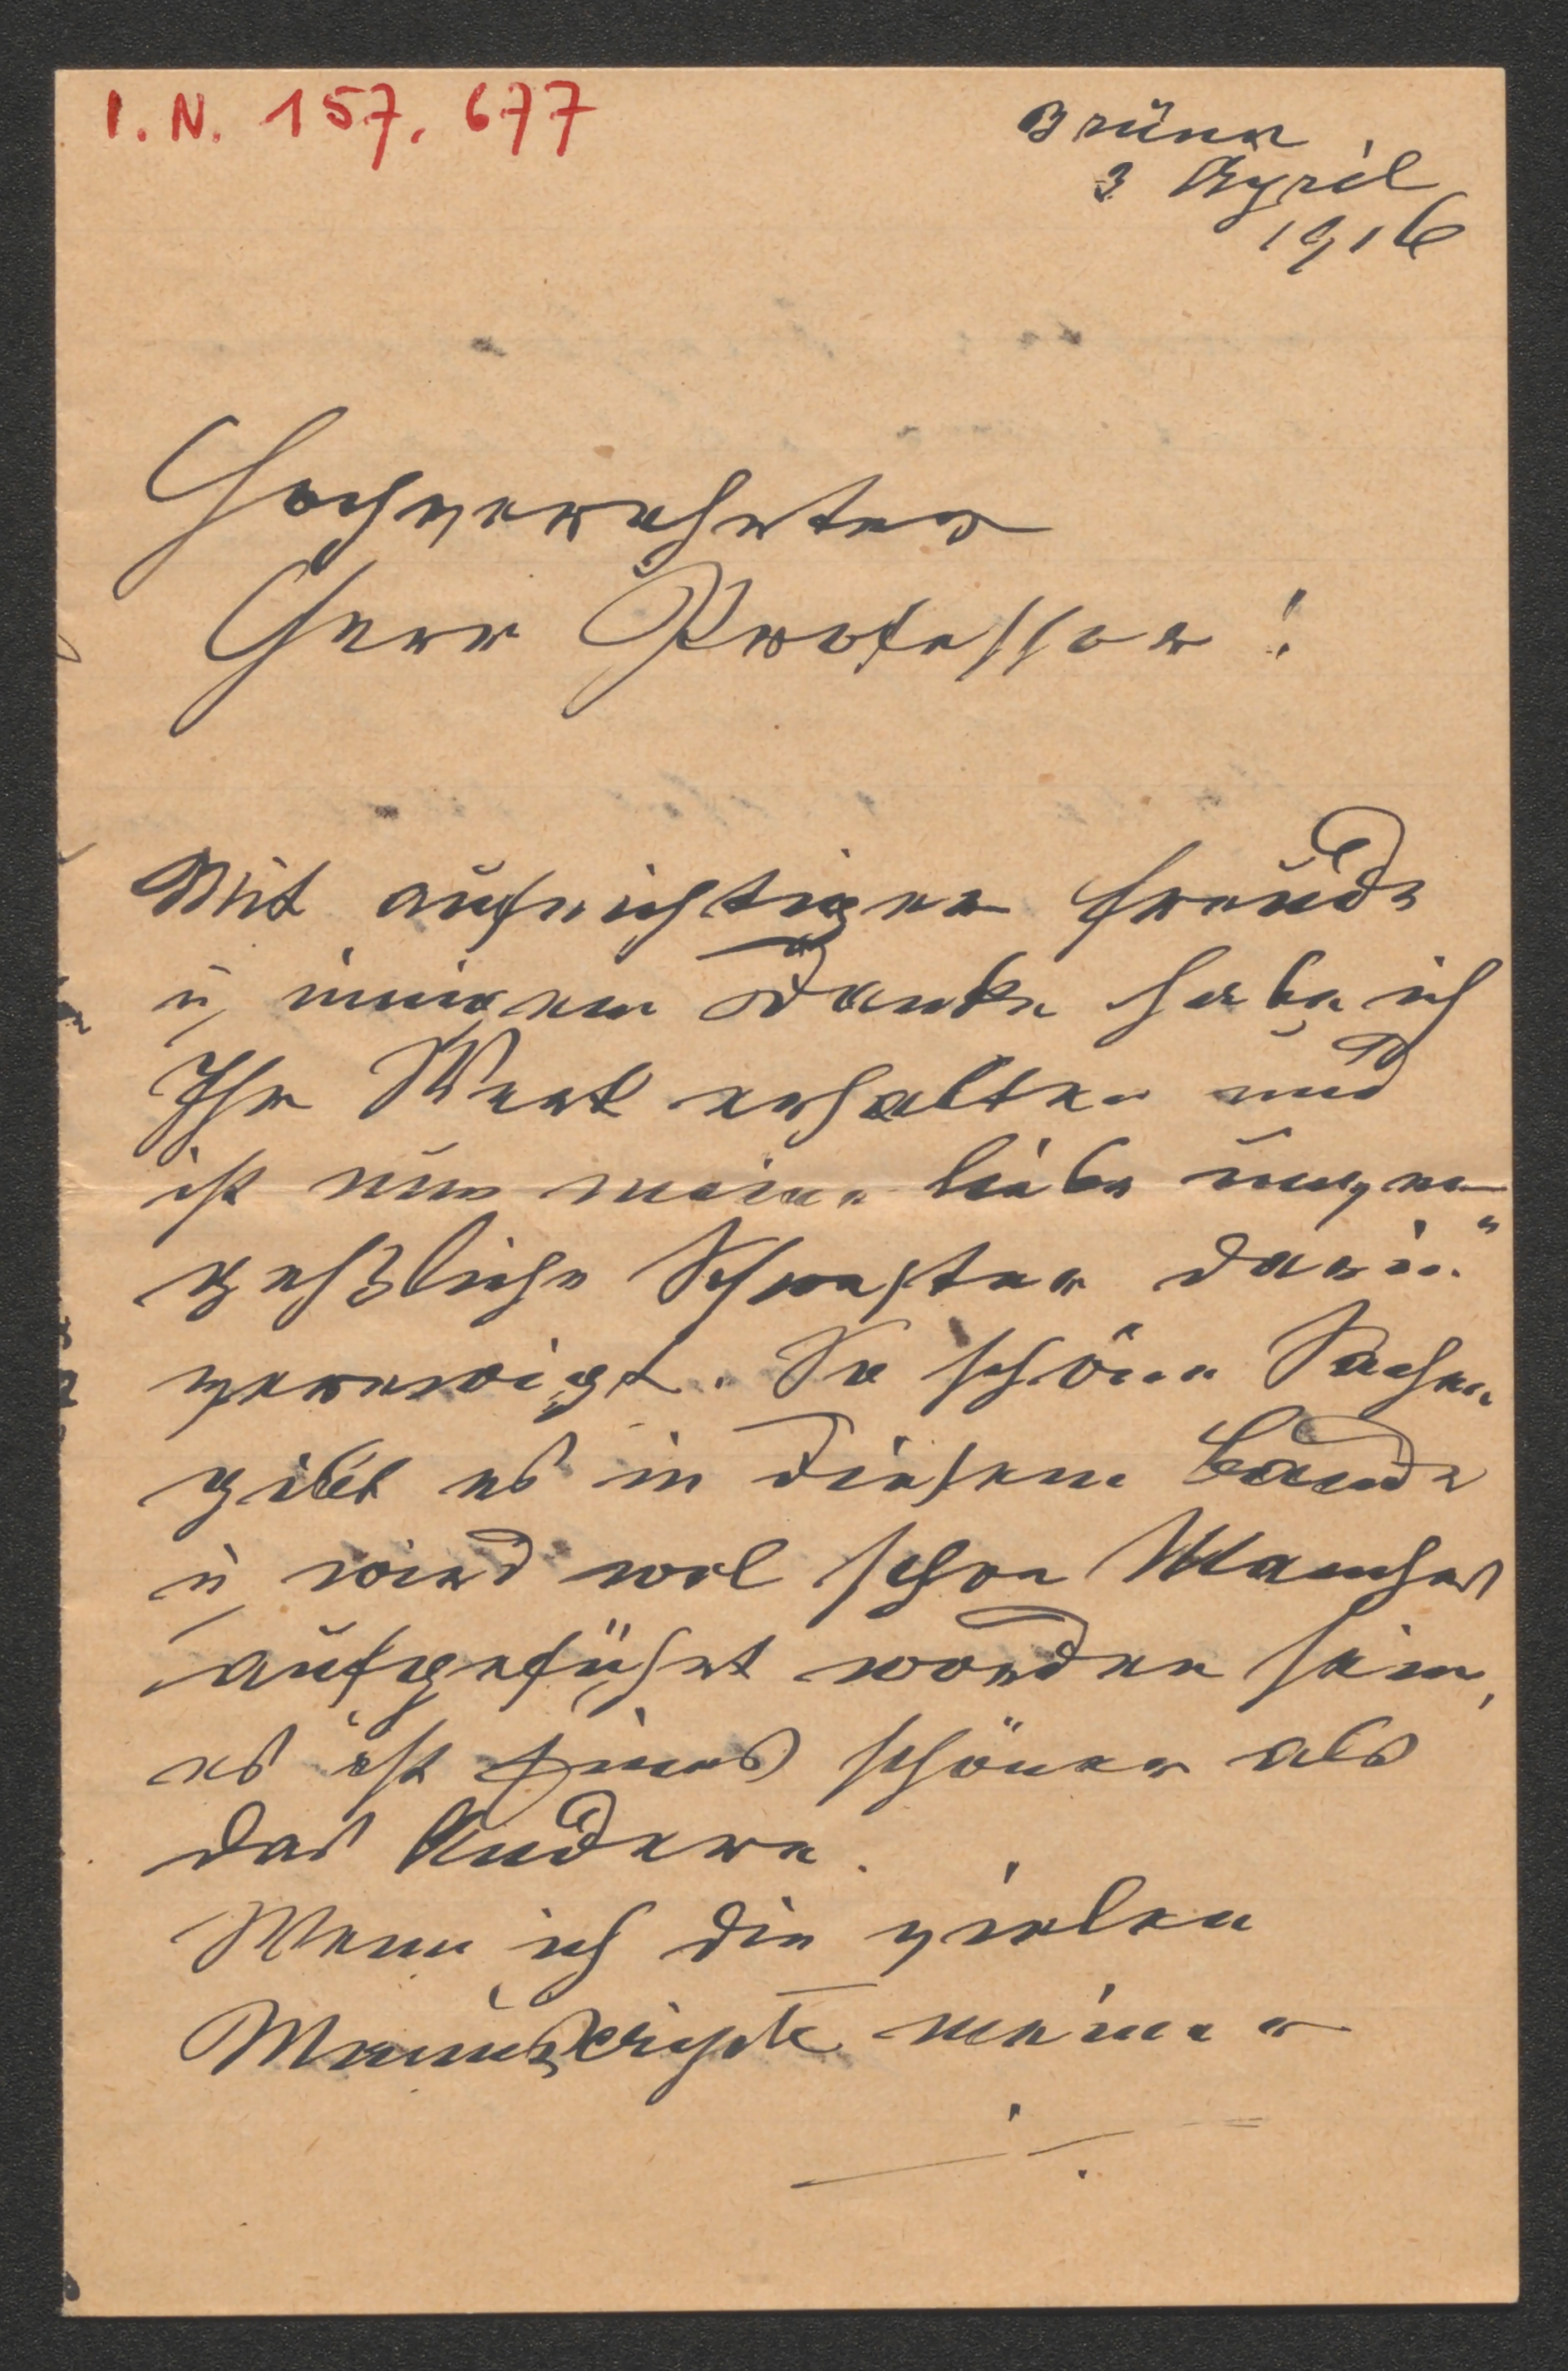 I. N. 157.677
Brünn
3 April
1916
Hochverehrter
Herr Professor!
Mit aufrichtiger Freude
u. innigem Danke habe ich
Ihr Werk erhalten und
ist nun meine liebe unver
geßliche Schwester darin
verewigt. So schöne Sachen
gibt es in diesem Bande
u. wird wol schon Manches
aufgeführt worden sein,
es ist Eines schöner als
das Andere.
Wenn ich die vielen
Manuskripte meiner